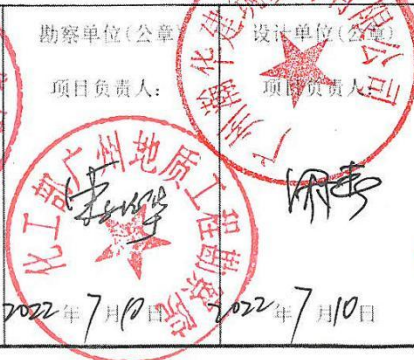 勘察单位(公章)
项目负责人:
化工部广州地质工程勘察院
2022年7月10日
设计单位(公章)
项目负责人:
广州瀚化建
限公司
2022年7月10日